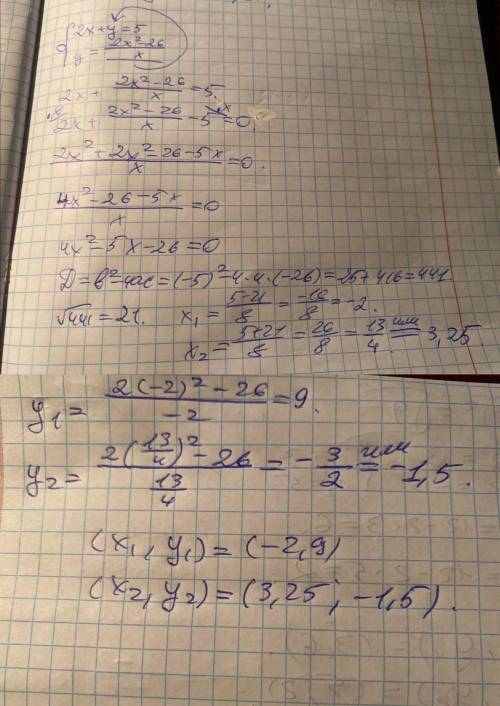 { 2x+y=5
y = (2x²-26)/x
2x + (2x²-26)/x = 5.
2x + (2x²-26)/x - 5 = 0
(2x²+2x²-26-5x)/x = 0.
(4x²-26-5x)/x = 0
4x²-5x-26=0
D=b²-4ac=(-5)²-4·4·(-26)=25+416=441.
√441=21. x₁ = (5-21)/8 = -16/8 = -2.
x₂ = (5+21)/8 = 26/8 = 13/4 или = 3,25.
y₁ = (2(-2)²-26)/-2 = 9.
y₂ = (2(13/4)²-26)/(13/4) = -3/2 или = -1,5.
(x₁, y₁)=(-2,9)
(x₂, y₂)=(3,25; -1,5).